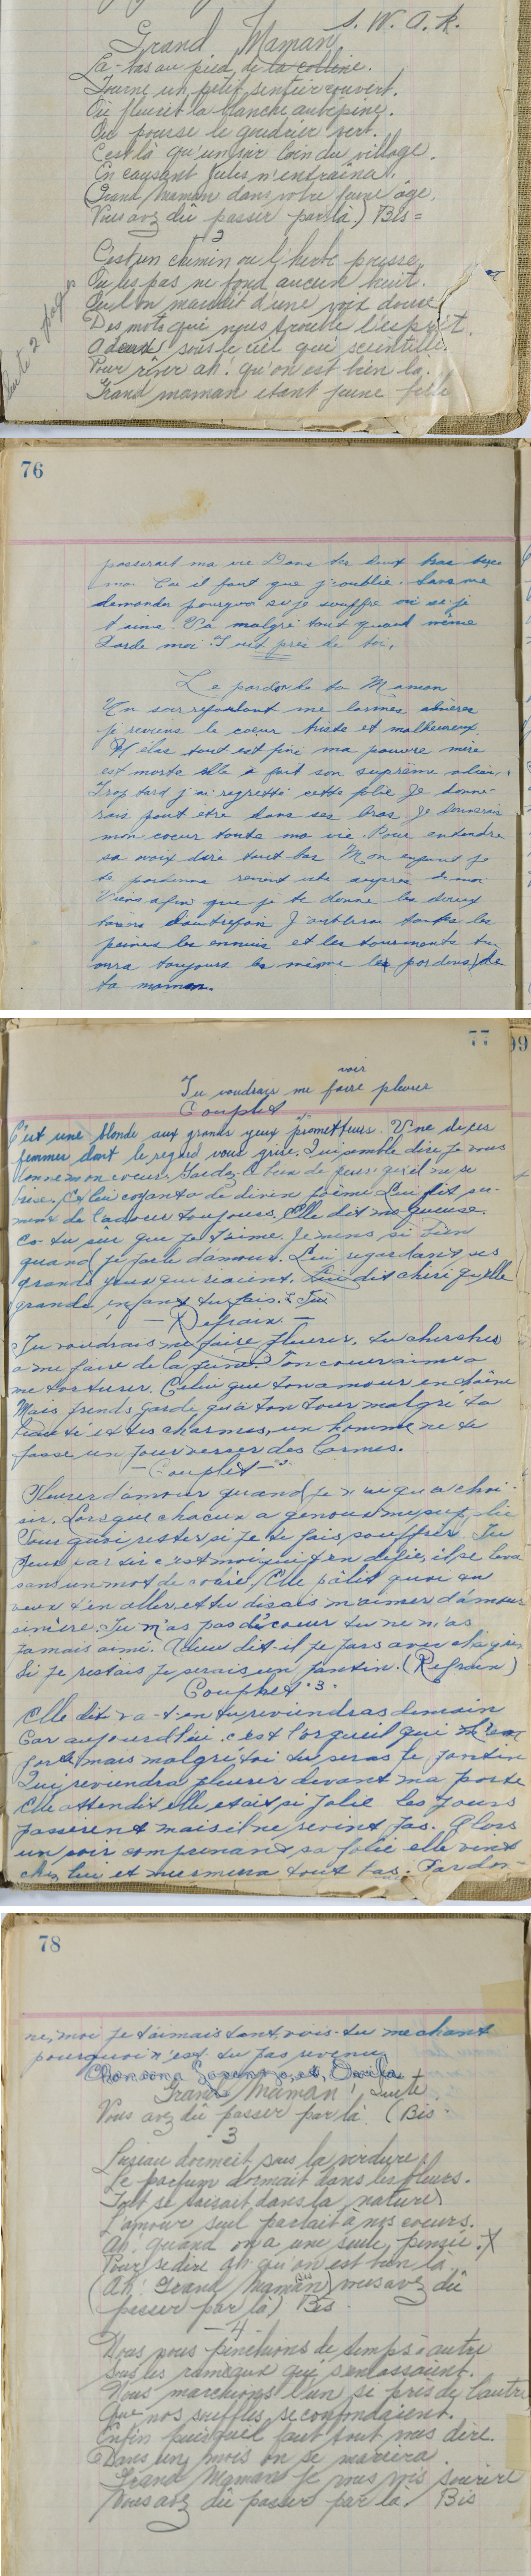 S. W. A. R.
Grand Maman
La-bas au pied de la colline.
Tourne un petit sentier couvert.
Où fleurit la blanche aubépine.
Ou pousse le goudrier vert.
C'est là qu'un soir loin du village.
En causant Jules m'entraîna.
(Grand Maman dans votre jeune âge.
Vous avez dû passer par là.) Bis =
2
C'est un chemin ou l'herbe pousse.
Ou les pas ne fond aucun bruit.
Ou l'on marchait d'une voix douce
Des mots qui nous trouble l'esprit.
A deux sous le ciel qui scientille.
Pour rêver ah. qu'on est bien la.
Grand maman etant jeune fille
Suite 2 pages
76
passerait ma vie Dans tes deux bras
moi Car il faut que j'oublie. Sans me
demander pourquoi si je souffre ou si je
t'aime. Va malgré tout quand même
Garde moi Tout près de toi.
Le pardon de ta Maman
Un soir refoulant me larmes amères
je reviens le coeur triste et malheureux
Hélas tout est fini ma pauvre mère
est morte elle à fait son suprême adieu.
Trop tard j'ai regretté cette folie Je donne-
rais pout être dans ses bras Je donnerais
mon coeur toute ma vie. Pour entendre
sa voix dire tout bas Mon enfant je
te pardonne revient vite auprès de moi
Viens afin que je te donne les doux
baisers d'autrefois J'oublirai toutes les
peines les ennuis et les tourments tu
aura toujours le même les pardons de
ta maman.
77
99
voir
Tu voudrais me faire pleurer
Couplet
C'est une blonde aux grands yeux prometteurs. Une de ces
femmes dont le regard vous grise. Qui semble dire je vous
donne mon coeur. Gardez-le bien de peur qu'il ne se
brise. Et lui croyant à de divin poème Lui dit su-
mois de l'amour toujours. Elle dit moqueuse.
Es-tu sûr que je t'aime. Je mens si bien
quand je parle d'amour. Lui regardant ses
grands yeux qui riaient. Lui dit chéri quelle
grande enfant tu fais.
— Refrain —
Tu voudrais me faire pleurer, tu cherches
a me faire de la peine Ton coeur aime a
me torturer. Celui que ton amour enchaîne
Mais prends garde qu'à ton tour malgré ta
beauté et tes charmes, un homme ne te
fasse un jour verser des larmes.
— Couplet — 2
Pleurer d'amour quand je n'ai qu'a choi-
sir. Lorsque chacun a genoux me supplie
Pourquoi rester si je te fais souffrir. Tu
peux partir c'est moi qui t'en défie, il se leva
sans un mot de colère, Elle pâlit quoi tu
veux t'en aller, et tu disais m'aimer d'amour
sincère. Tu n'as pas de coeur tu ne m'as
jamais aimé. Adieu dit-il je pars avec chagrin
Si je restais je serais un pantin. (Refrain)
Couplet "3"
Elle dit va-t-en tu reviendras demain
Car aujourd'hui c'est l'orgueil qui
mais malgré toi tu seras le pantin
Qui reviendra pleurer devant ma porte
Elle attendit elle était si jolie les jours
passèrent mais il ne revint pas. Alors
un soir comprenant sa folie elle vint
chez lui et murmura tout bas. Pardon-
78
ne, moi je t'aimais tant, vois-tu mechant
pourquoi n'est tu pas revenu.
Grand Maman! Suite
Vous avez dû passer par là (Bis
3
L'oiseau dormait sous la verdure.
Le parfum dormait dans les fleurs.
Tout se taisait dans la nature
L'amour seul parlait à nos coeurs.
Ah. quand on a une seule pensée. X
Pour se dire ah qu'on est bien là.
(Ah! Grand Maman) vous avez dû
passer par là) Bis.
— 4 —
Nous nous penchions de temps à autre
Sous les rameaux qui s'enlassaient.
Nous marchions l'un si près de l'autre
Que nos souffles se confondaient.
Enfin puisqu'il faut tout vous dire.
Dans un mois on se mariera.
Grand Maman je vous vois sourire
Vous avez dû passer par la. Bis